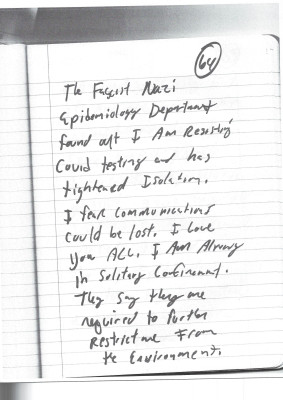 64
The Fascist Nazi
Epidemiology Department
found out I Am Resisting
Covid testing and has
tightened Isolation.
I fear communications
could be lost. I love
you ALL. I Am Already
in Solitary Confinement.
They Say they are
required to further
Restrict me From
the Environment.